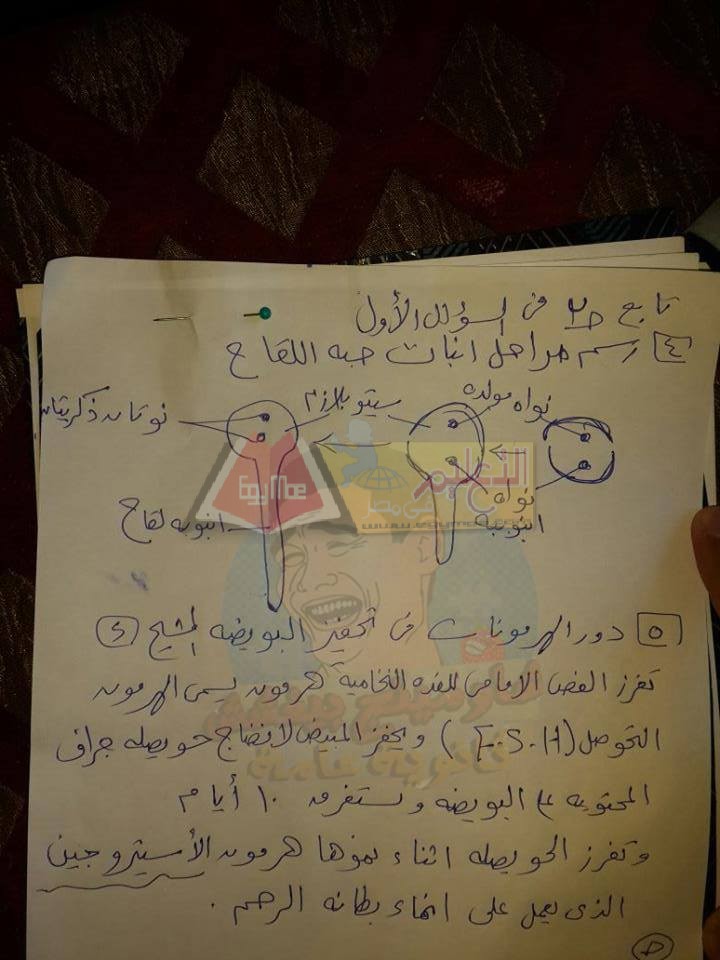 تابع ج٢ فى السؤال الأول
٤ رسم مراحل انبات حبه اللقاح
نواه مولده
سيتوبلازم
نوتان ذكريتان
نواه
انبوبيه
انبوبه لقاح
التعليم
فى مصر
٥ دور الهرمونات فى تحفيز البويضه
تفرز الفص الامامى للغده النخامية هرمون يسمى الهرمون
التحوصل (F.S.H) ويحفز المبيض لانضاج حويصله جراف
المحتويه على البويضه وتستغرق ١٠ أيام
وتفرز الحويصله اثناء نموها هرمون الأستيروجين
الذى يعمل على انماء بطانه الرحم .